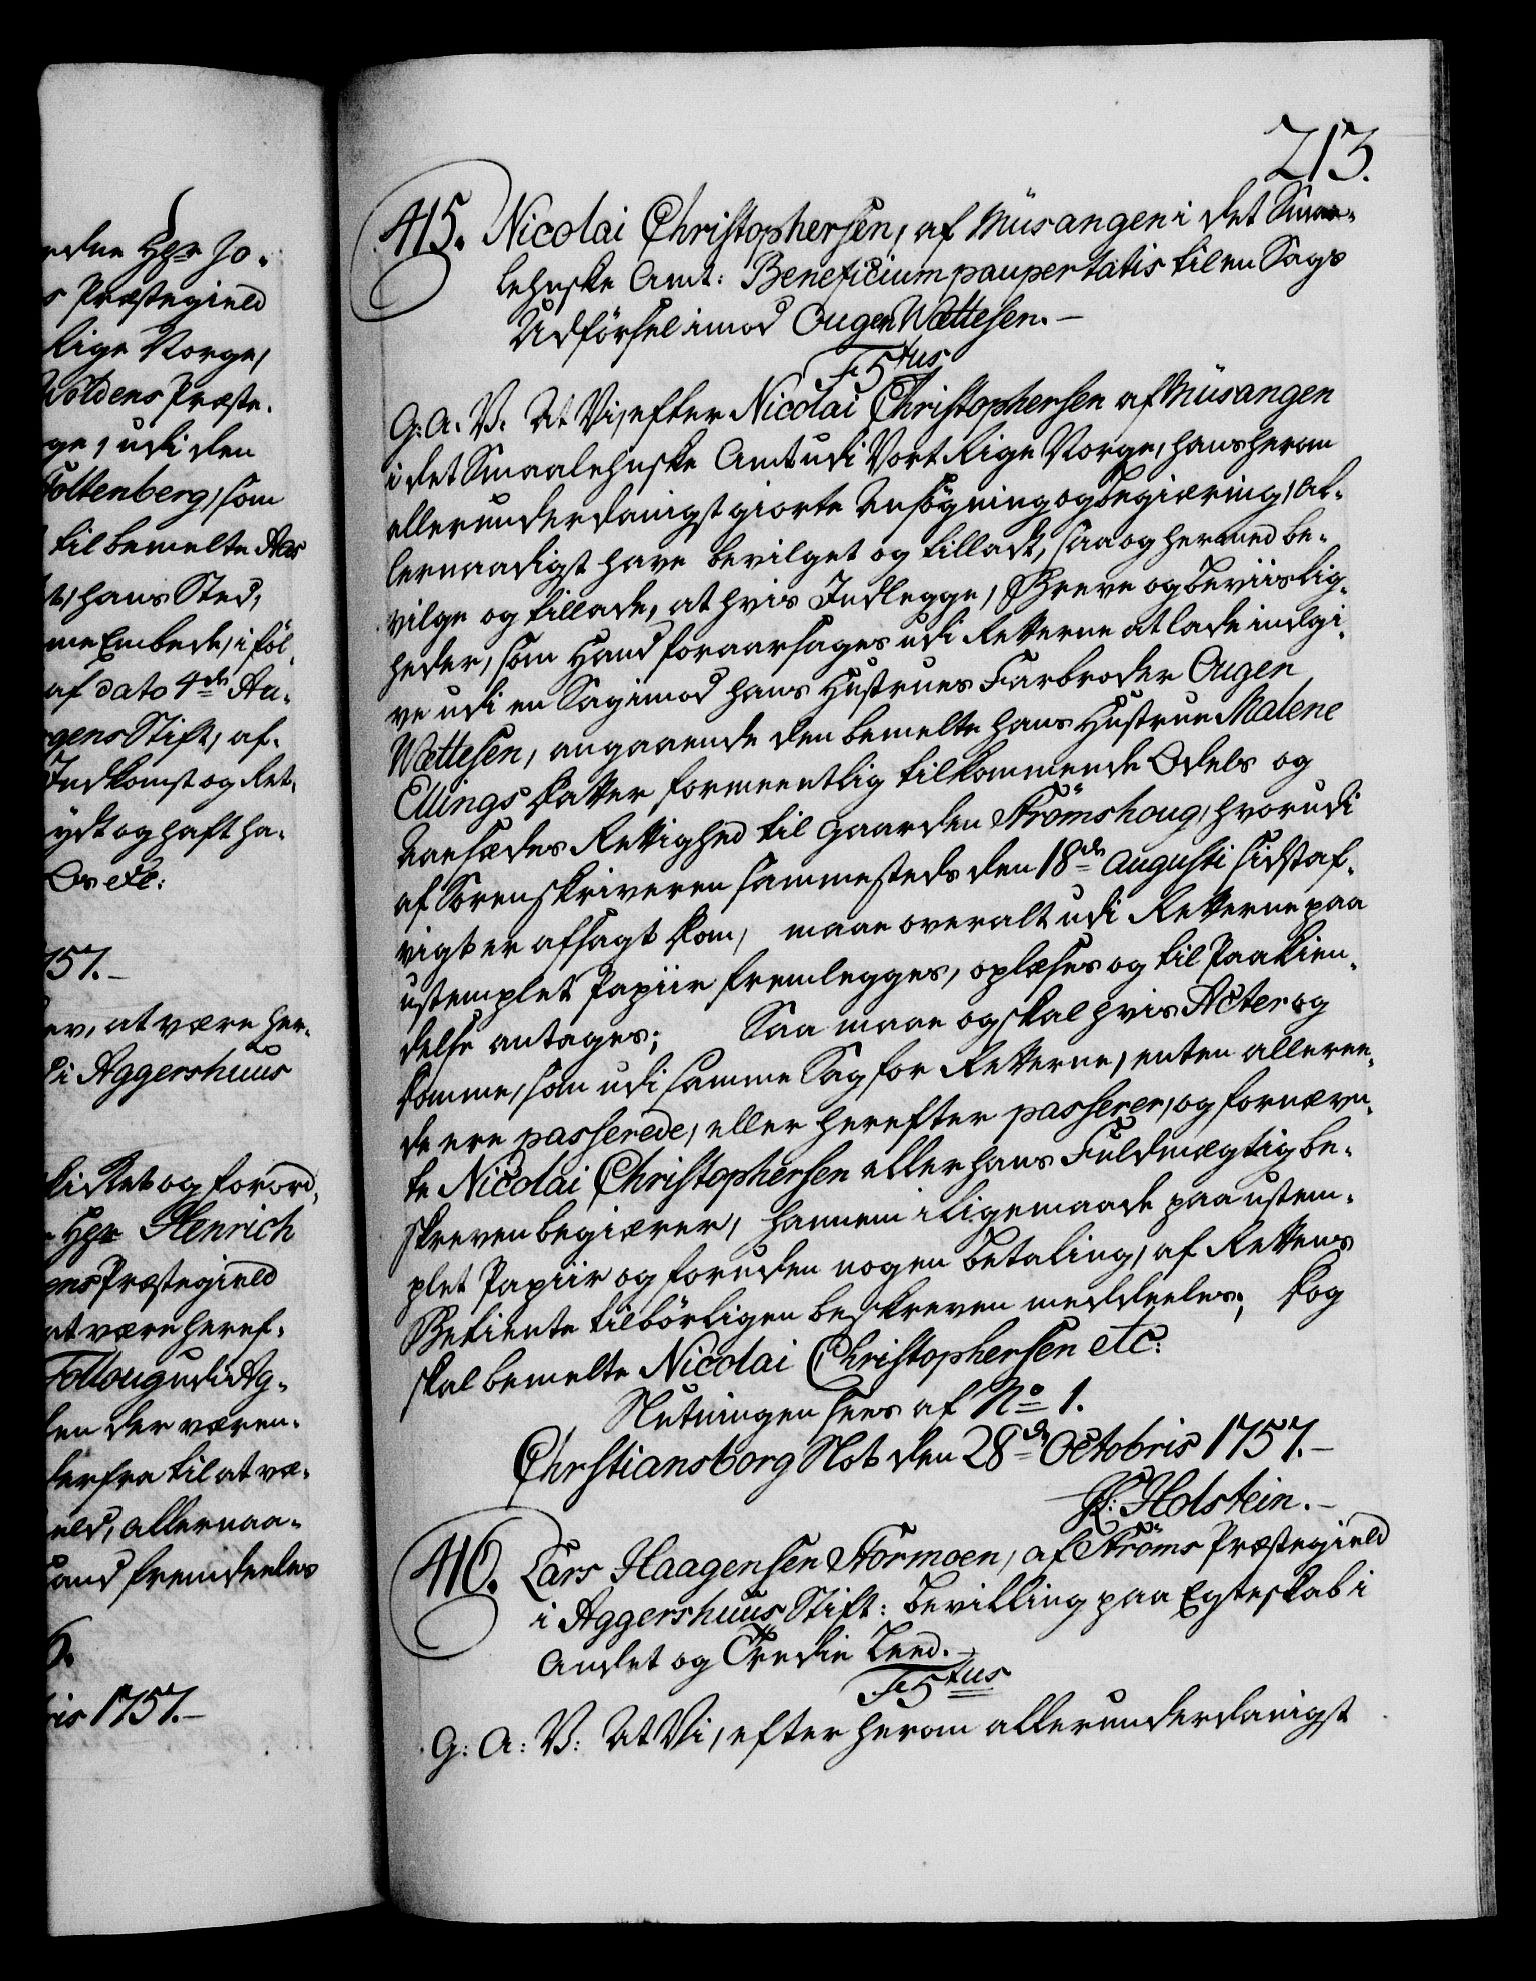 edne Hgr Jo-
s Præstegield
Rige Norge,
Woldens Præste-
ge, udi den
Toltenberg, som
til bemelte Aas
t, hans Sted,
me Embede, i föl-
af dato 4de Au-
gens Stift, af-
Indkomst og Ret-
ydt og haft ha-
Os etc:
757.-
ev, at være her-
di Aggershuus
lidkab og forord-
Hgr Henrich
ens Præstegield
at være heref-
Follougudi Ag-
den der væren-
derfra til at væ-
eld, allernaa-
Hand fremdeeles
6.
ris 1757.-
213.
415. Nicolai Christophersen, af Müsangen i det Smaa-
lehnske Amt: Beneficium paupertatis til en Sags
Udförsel imod Ougen Wettesen.-
F 5tus
G: A. V. At Vi, efter Nicolai Christophersen af Müsangen
i det Smaalehnske Amt udi Vort Rige Norge, hans herom
allerunderdanigst giorte Ansögning og Begiæring, al-
lernaadigst have bevilget og tilladt, saa og hermed be-
vilge og tillade, at hvis Indlegge, Breve og Beviislig-
heder, som Hand foraarsages udi Retterne at lade indgi-
ve udi en Sag imod hans Hustrues Farbroder Ougen
Wettesen, angaaende den bemelte hans Hustrue Malene
Ellings Datter formeentlig tilkommende Odels og
Aasædes Rettighed til Gaarden Strömshoug, hvorudi
af Sorenskriveren sammesteds den 18de Augusti sidstaf-
vigt er afsagt Dom, maae overalt udi Retterne paa
ustemplet Papiir fremlegges, oplæses og til Paakien-
delse antages; Saa maae og skal hvis Acter og
Domme, som udi samme Sag for Retterne, enten alleree-
de ere passerede, eller herefter passerer, og fornævn-
te Nicolai Christophersen eller hans Fuldmægtig be-
skreven begiærer, hannem i Ligemaade paa ustem-
plet Papiir og foruden nogen Betaling, af Rettens
Betiente tilbörligen beskreven meddeeles; Dog
skal bemelte Nicolai Christophersen etc:
Slutningen sees af No 1.
Chrstiansborg Slot den 28de Octobris 1757.-
Holstein.-
416. Lars Haagensen Stormoen, af Ströms Præstegield
i Aggershuus Stift: Bevilling paa Egteskab i
Andet og Tredie Leed.-
F 5tus
G: A: V: At Vi, efter herom allerunderdanigst